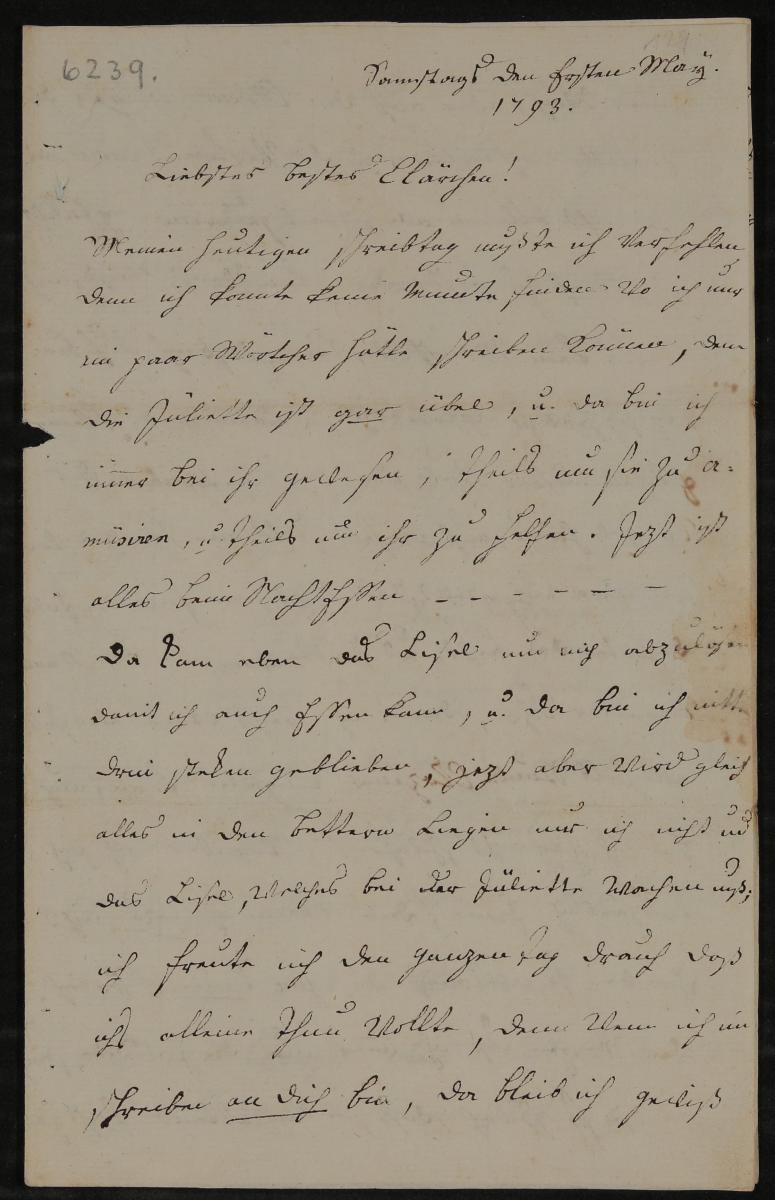 6239.
Samstags den Ersten May.
1793.
Liebstes bestes Clärchen!
Meinen heutigen schreibtag mußte ich Verfehlen
denn ich konnte keine Minute finden Wo ich nur
ein paar Wörtcher hätte schreiben Können, denn
die Jüliette ist gar übel, u. da bin ich
immer bei ihr gewesen, theils um sie zu a-
müsiren, u. theils um ihr zu helfen. Jezt ist
alles beim NachtEssen — — — — — —
Da kam eben das Lisel um mich abzulösen
damit ich auch Essen kann, u. da bin ich mitten
drin steken geblieben, jezt aber Wird gleich
alles in den bettern Liegen nur ich nicht und
das Lisel, Welches bei der Jüliette Wachen muß;
ich freute mich den ganzen tag drauf daß
ichs alleine thun Wollte, denn Wenn ich im
schreiben an dich bin, da bleib ich gewiß